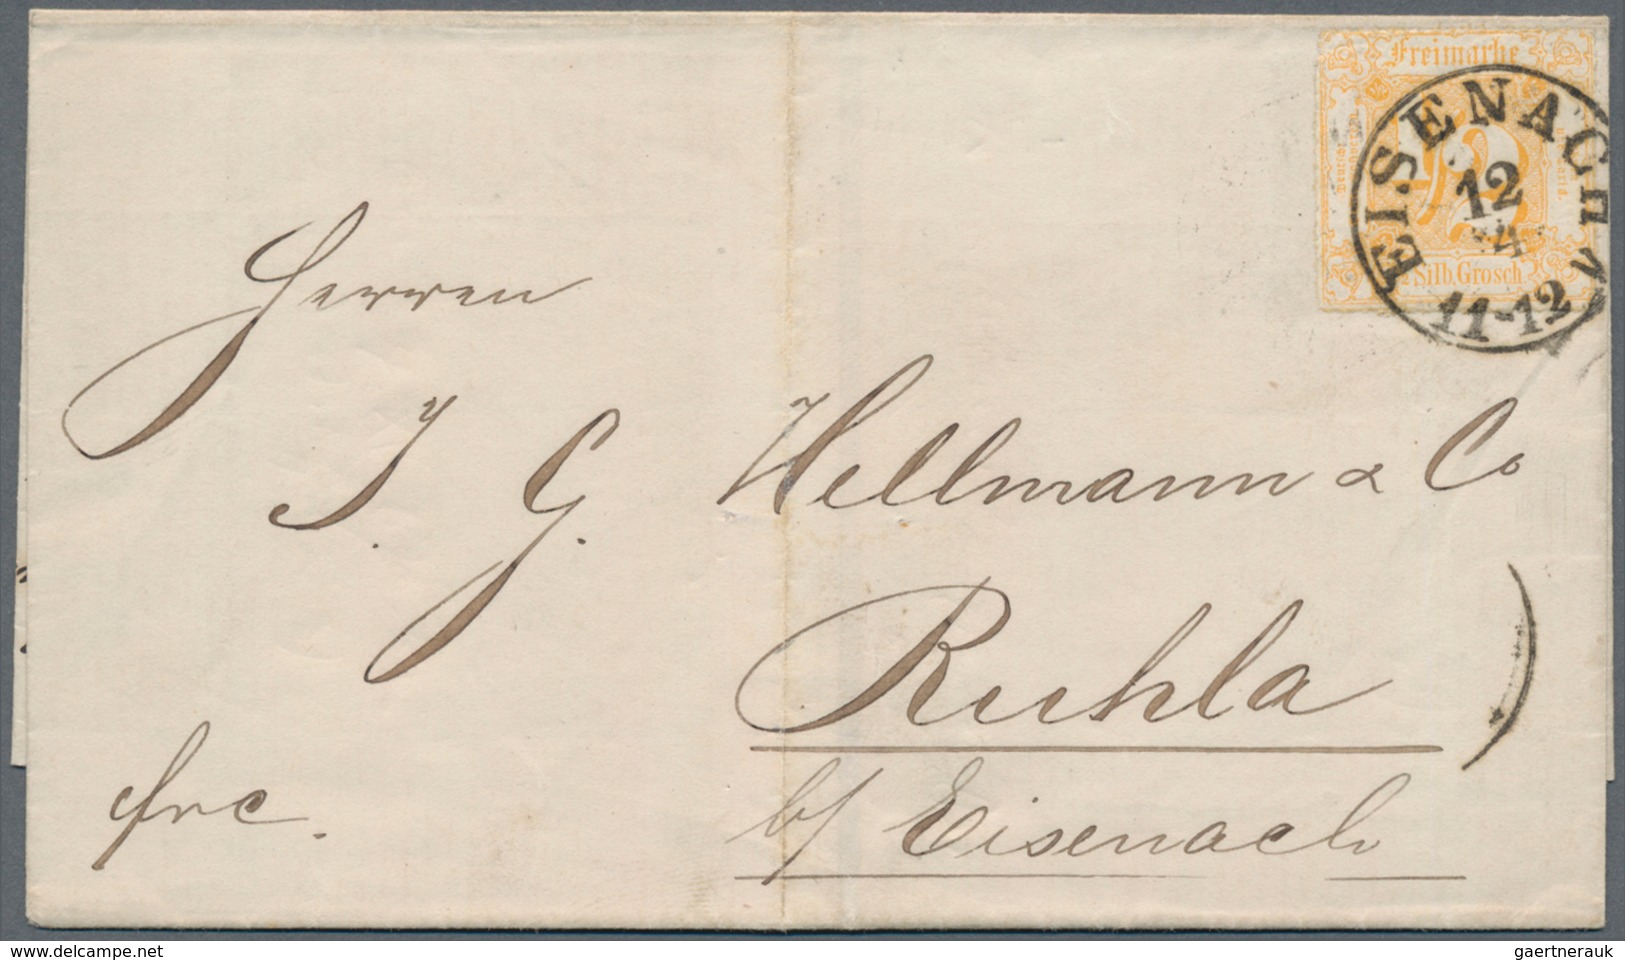 Freimarke
1/2
Silb. Grosch
EISENACH
12
4
11-12
Herren
J. G. Hellmann & Co
Ruhla
b/ Eisenach
frc.
delcampe.net
gaertnerauk